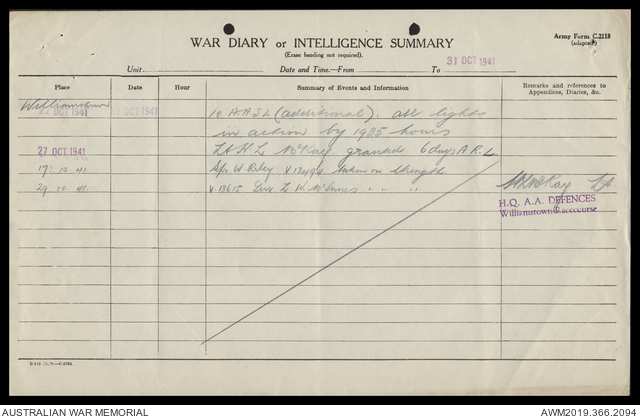 Army Form C.2118
(adapted)
WAR DIARY or INTELLIGENCE SUMMARY
(Erase heading not required).
Unit Date and Time.—From To 31 OCT 1941
Place Date Hour Summary of Events and Information Remarks and references to Appendices, Diaries, &c.
Williamstown
OCT 1941 OCT 1941 10 A.A.S.L (additional). all lights
in action by 1935 hours
27 OCT 1941 Lt K L McKay granted 6 days A.R.L.
17 10 41. Spr W. Riley V 13494 taken on strength
29 10 41. V 13615 K McInnes " " "
McKay Lt
H.Q. A.A. DEFENCES
Williamstown Racecourse
AUSTRALIAN WAR MEMORIAL
AWM2019.366.2094